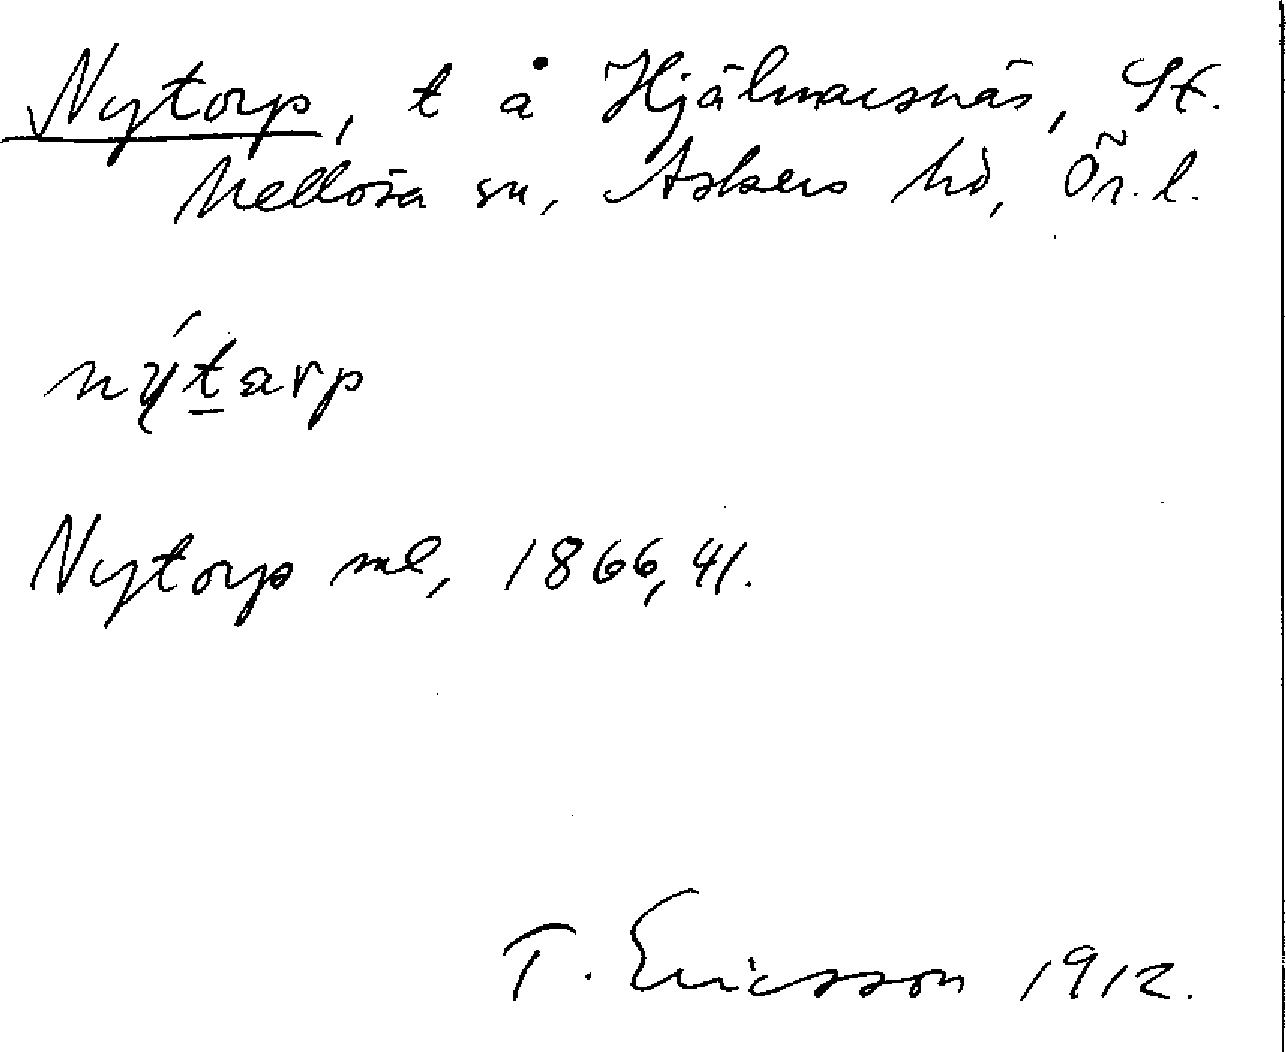 Nytorp, t å Hjälmarsnäs, St.
Mellösa sn, Askers hd, Ör. l.
nýtarp
Nytorp ml, 1866, 41.
T. Ericsson 1912.